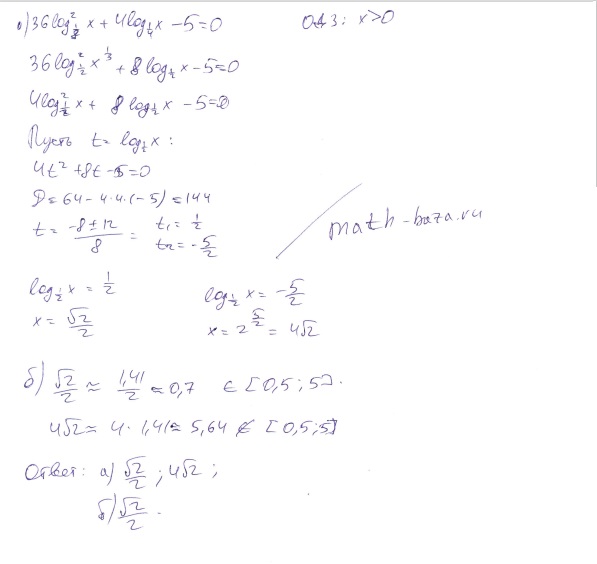 а) 36log²_{1/8} x + 4log_{1/4} x - 5 = 0 ОДЗ: x>0
36log²_{1/2} x^{1/3} + 8log_{1/2} x - 5 = 0
4log²_{1/2} x + 8log_{1/2} x - 5 = 0
Пусть t = log_{1/2} x :
4t² + 8t - 5 = 0
D = 64 - 4·4·(-5) = 144
t = (-8 ± 12)/8 = t₁ = 1/2 t₂ = -5/2
math-baza.ru
log_{1/2} x = 1/2 log_{1/2} x = -5/2
x = √2/2 x = 2^{5/2} = 4√2
б) √2/2 ≈ 1,41/2 ≈ 0,7 ∈ [0,5; 5].
4√2 ≈ 4·1,41 ≈ 5,64 ∉ [0,5; 5]
Ответ: а) √2/2 ; 4√2 ;
б) √2/2 .